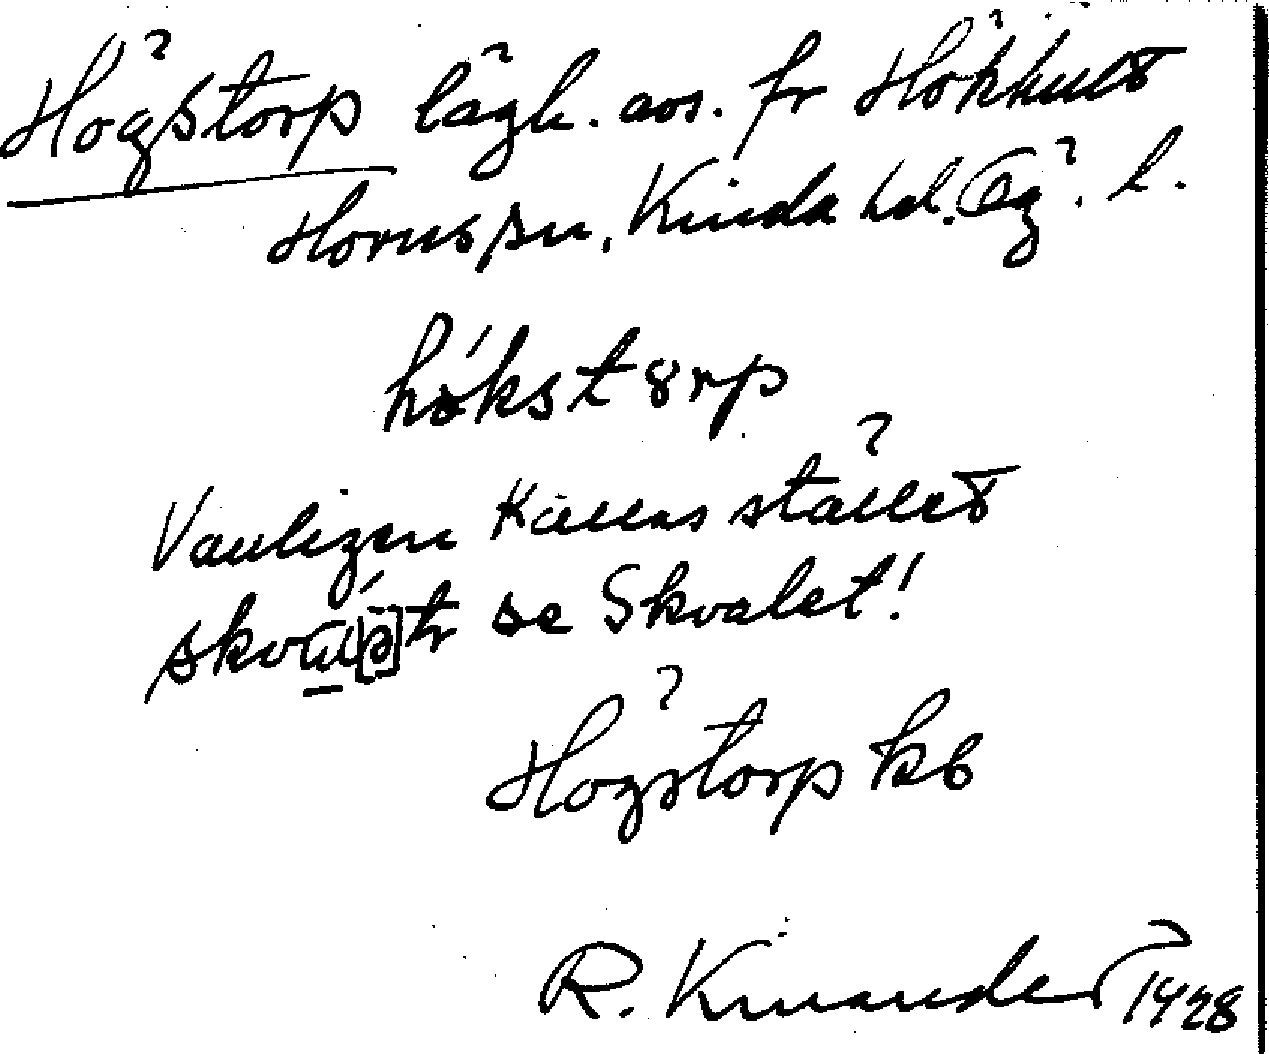 Högstorp lägh. avs. fr Hökhult
Horns sn, Kinda hd. Ög. l.
hö́kstɵrp
Vanligen kallas stället
se Skvalet!
Högstorp kb
R. Kinander 1928